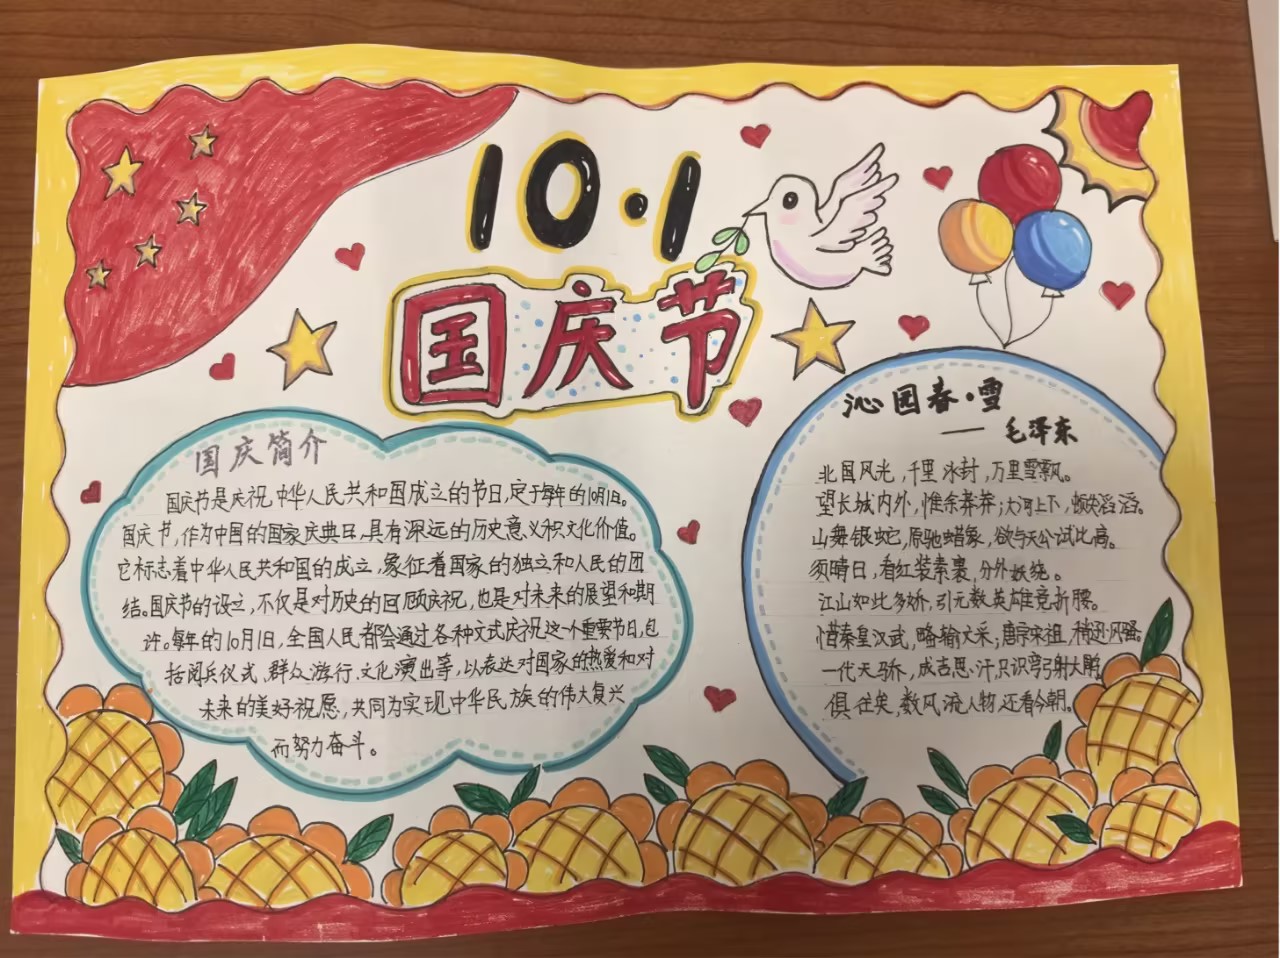 10·1
国庆节
国庆简介
国庆节是庆祝中华人民共和国成立的节日,定于每年的10月1日。
国庆节,作为中国的国家庆典日,具有深远的历史意义积文化价值。
它标志着中华人民共和国的成立,象征着国家的独立和人民的团
结。国庆节的设立,不仅是对历史的回顾庆祝,也是对未来的展望和期
许。每年的10月1日,全国人民都会通过各种文式庆祝这个重要节日,包
括阅兵仪式,群众游行,文化演出等,以表达对国家的热爱和对
未来的美好祝愿,共同为实现中华民族的伟大复兴
而努力奋斗。
沁园春·雪
—— 毛泽东
北国风光,千里冰封,万里雪飘。
望长城内外,惟余莽莽;大河上下,顿失滔滔。
山舞银蛇,原驰蜡象,欲与天公试比高。
须晴日,看红装素裹,分外妖娆。
江山如此多娇,引无数英雄竞折腰。
惜秦皇汉武,略输文采;唐宗宋祖,稍逊风骚。
一代天骄,成吉思汗,只识弯弓射大雕
俱往矣,数风流人物,还看今朝。